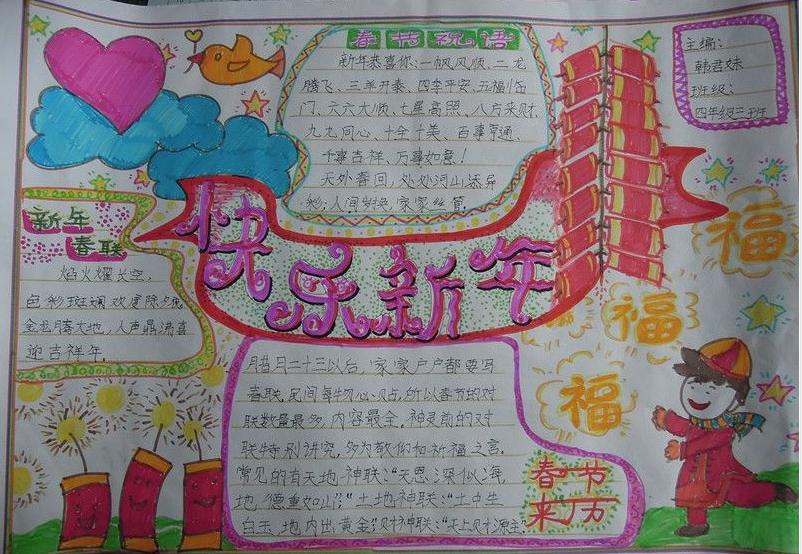 春节祝语
新年恭喜你:一帆风顺、二龙
腾飞、三羊开泰、四季平安、五福临
门、六六大顺、七星高照、八方来财、
九九同心、十全十美、百事亨通、
千事吉祥、万事如意!
天外春回,处处河山添异
彩;人间岁换,家家丝管
主编:
韩君妹
班级:
四年级三班
新年
春联
焰火耀长空,
色彩斑斓欢度除夕夜
金龙腾大地,人声鼎沸喜
迎吉祥年
快乐新年
福
福
福
腊月二十三以后,家家户户都要写
春联,民间每物必贴,所以春节的对
联数量最多,内容最全,神灵前的对
联特别讲究,多为敬仰和祈福之言.
常见的有天地神联:"天恩深似海,
地德重如山;"土地神联:"土中生
白玉,地内出黄金"财神联:"天上财源主
春节
来历